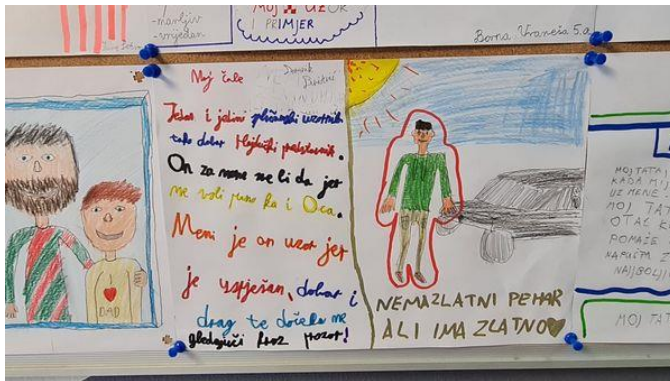 -marljiv
-vrijedan
MOJ UZOR
I PRIMJER
Borna Vraneša 5.a
Moj ćale
Dominik
Jedan i jedini
tako dobar
On za mene ne li da jer
me voli puno ka i Oca.
Meni je on uzor jer
je uspješan, dobar i
drag te dočeka me
gledajući kroz prozor!
DAD
NEMA ZLATNI PEHAR
ALI IMA ZLATNO
MOJ TATA
KADA
UZ MENE
MOJ TAT
OTAC K
POMAŽE
NAPUŠTA Z
NAJBOLJ
MOJ TAT